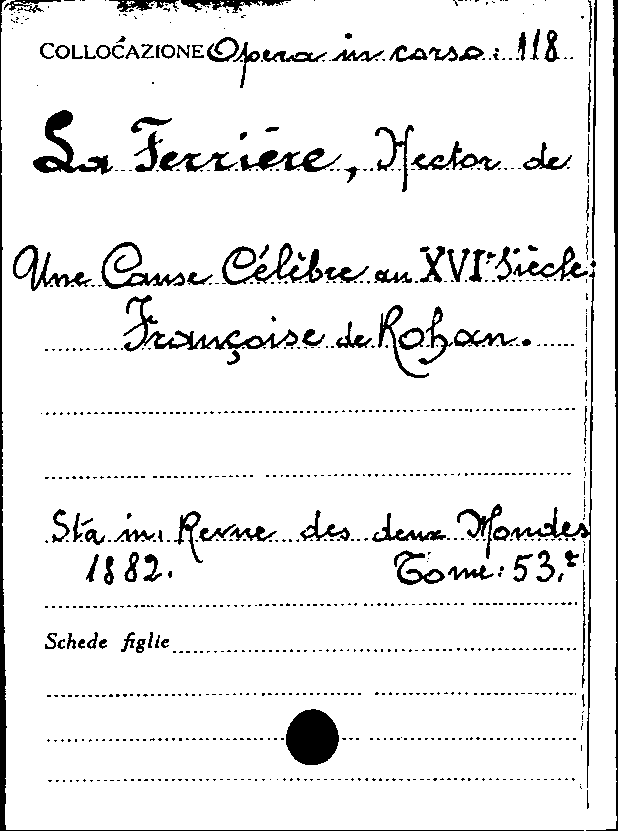 COLLOCAZIONE Opera in corso: 118
La Ferrière, Hector de
Une Cause Célèbre au XVIe Siècle:
Françoise de Rohan.
Sta in: Revue des deux Mondes
1882. Tome: 53.e
Schede figlie